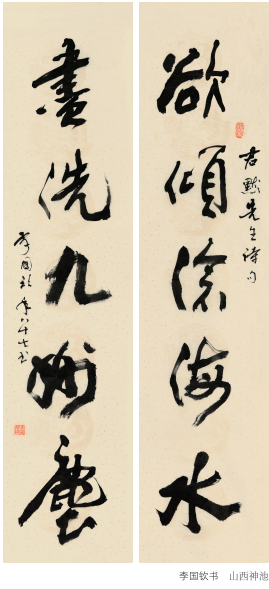 欲傾滄海水
君默先生詩句
盡洗九州塵
李国钦年八十七书
李国钦书 山西神池